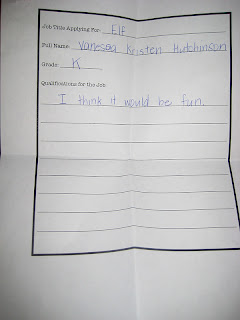 Job Title Applying For: Elf
Full Name Vanessa Kristen Hutchinson
Grade K
Qualifications for the Job
I think it would be fun.